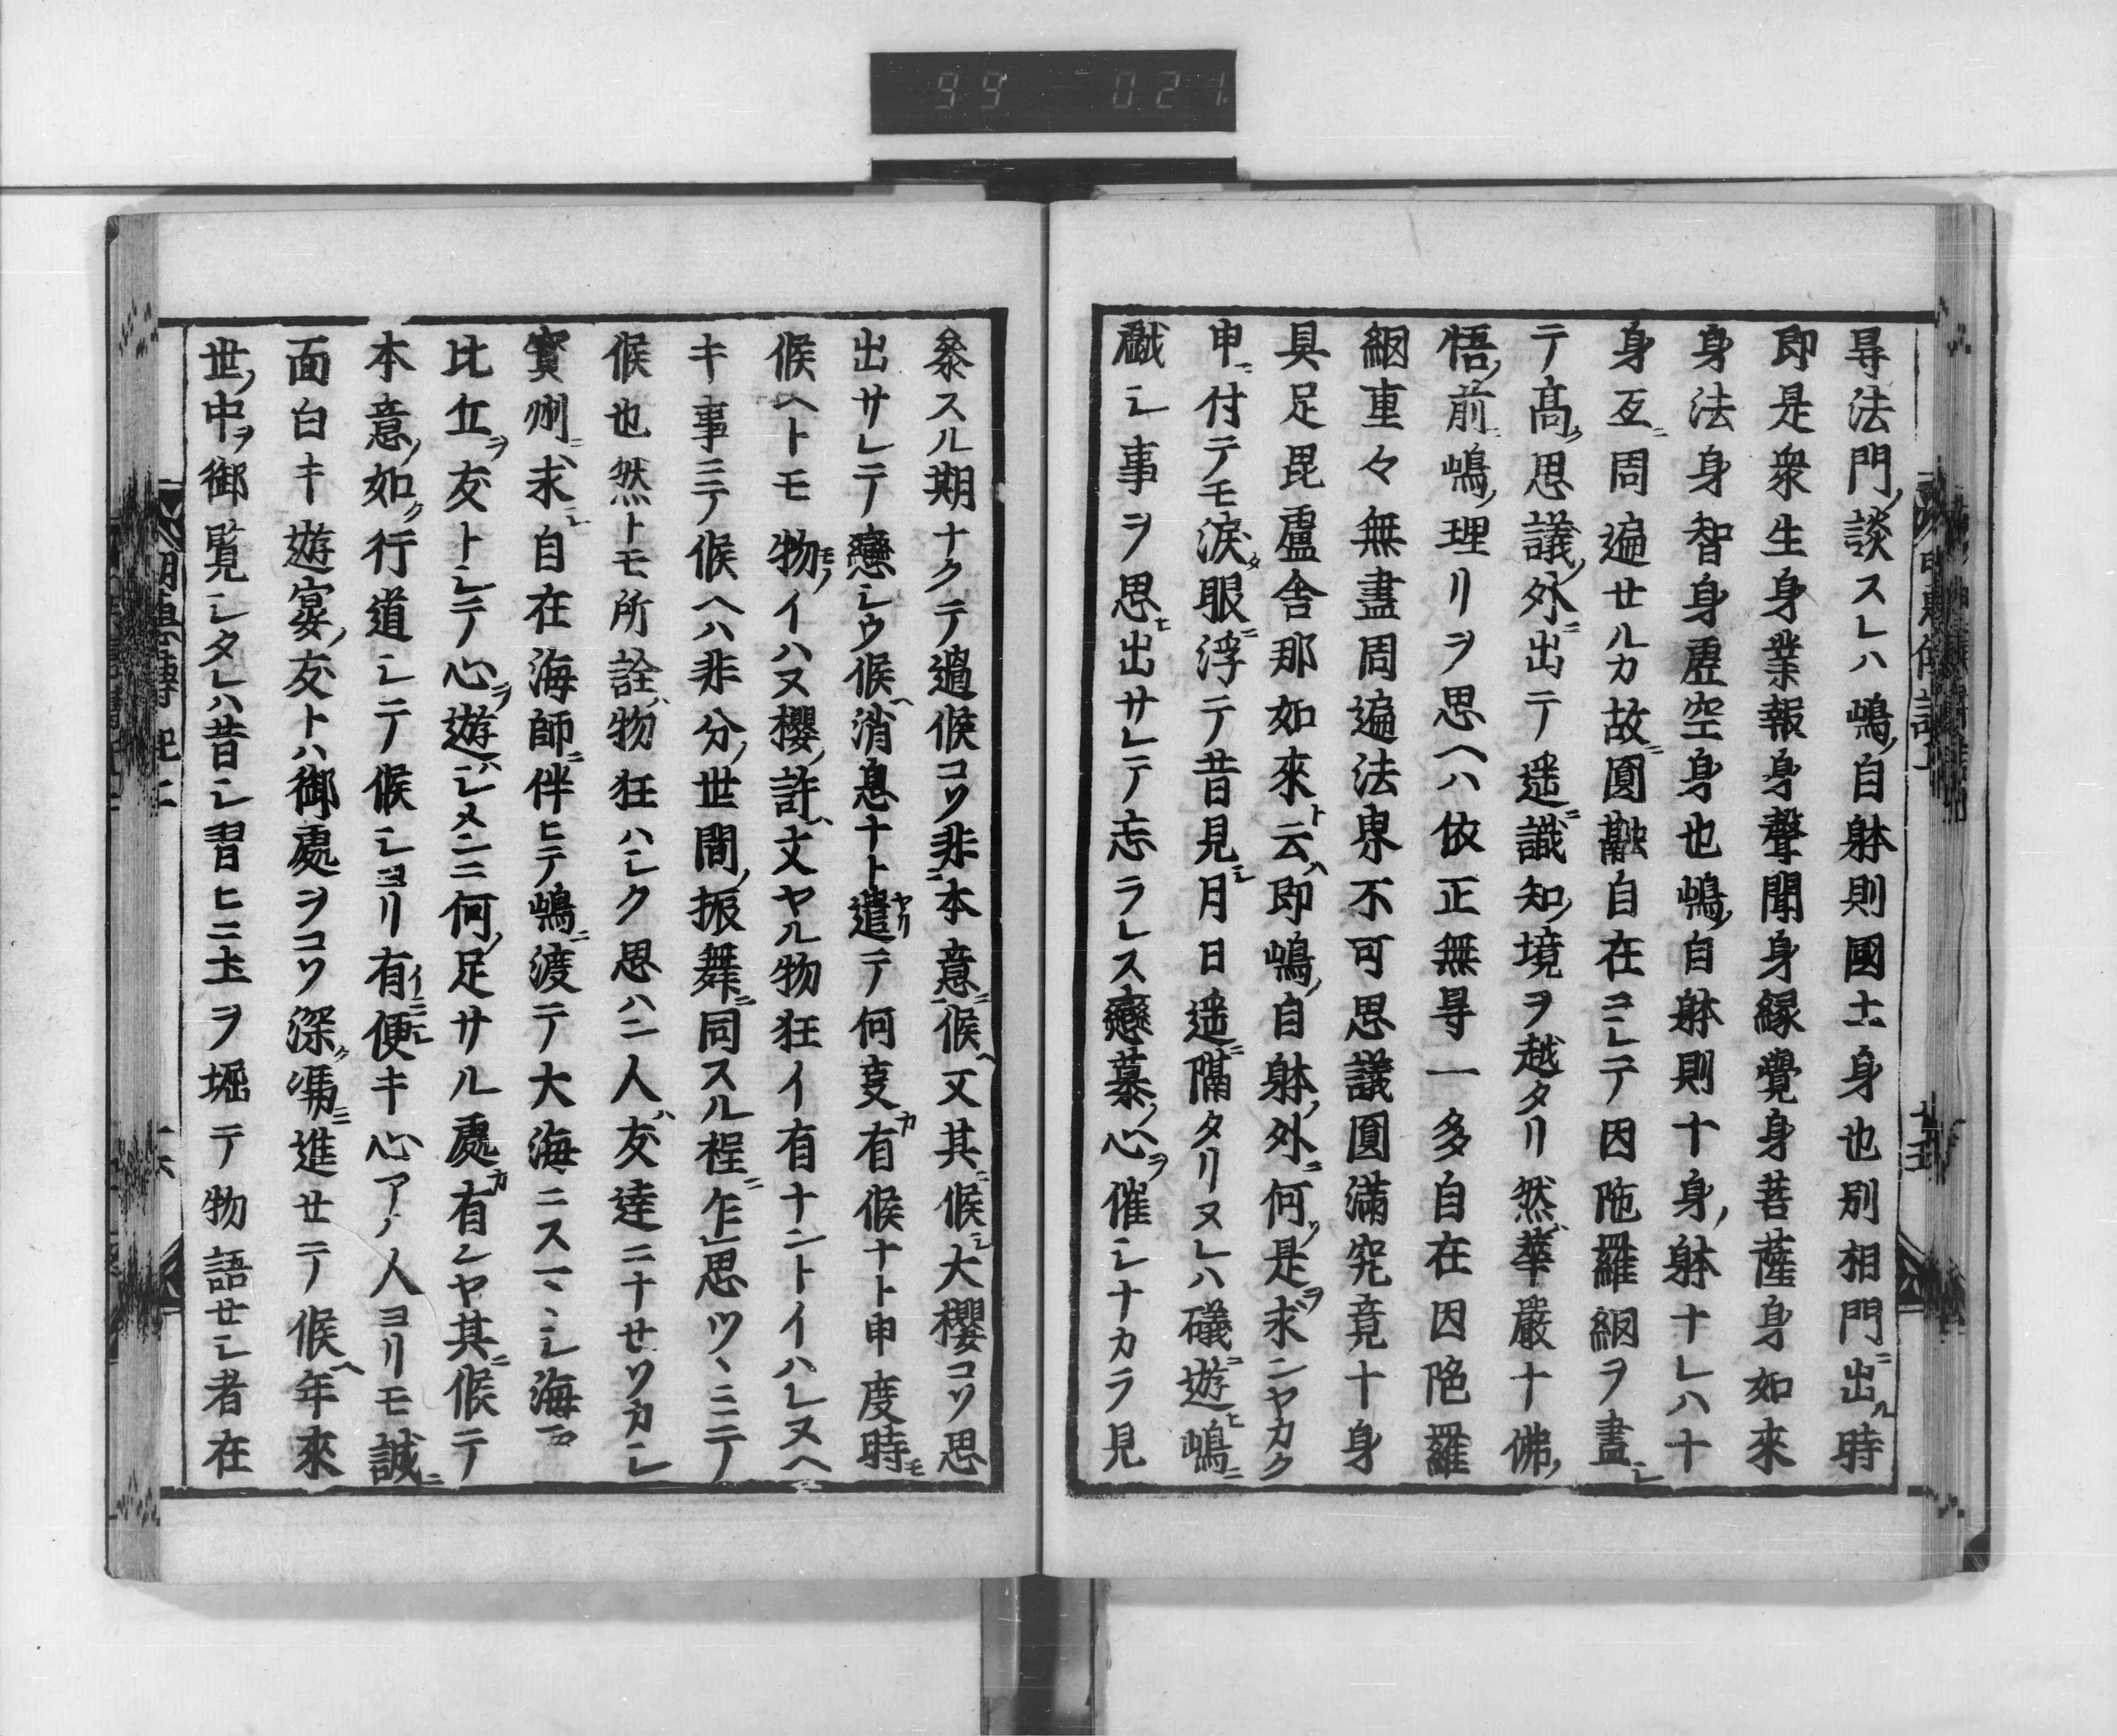 99 021
㝵法門ノ談スレハ嶋ノ自躰則國土身也別相門ニ出ル時
即是衆生身業報身聲聞身縁覺身菩薩身如來
身法身智身虚空身也嶋ノ自躰則十身ノ躰ナレハ十
身互ニ周遍セルカ故ニ圓融自在ニシテ因陁羅網ヲ盡シ
テ高ク思議ノ外ニ出テ遥ニ識知ノ境ヲ越タリ然ハ華嚴十佛ノ
悟ノ前ニ嶋ノ理リヲ思ヘハ依正無㝵一多自在因陁羅
網重々無盡周遍法界不可思議圓滿究竟十身
具足毘盧舎那如來ト云ハ即嶋ノ自躰ノ外ニ何ソ是ヲ求ンヤカク
申ニ付テモ涙タ眼ニ浮テ昔見シ月日遥ニ隔タリヌレハ礒ニ遊ヒ嶋ニ
戯シ事ヲ思ヒ出サレテ忘ラレス戀慕ノ心ヲ催シナカラ見
叅スル期ナクテ過候コソ非ニ本意ニ候ヘ又其ニ候シ大櫻コソ思
出サレテ戀シウ候ヘ消息ナト遣テ何亊カ有候ナト申度時モ
候ヘトモ物モノイハヌ櫻ノ許ヘ文ヤル物狂イ有ナントイハレヌヘ
キ事ニテ候ヘハ非分ノ世間ノ振舞ニ同スル程ニ乍思ツヽミテ
候也然トモ所詮ハ物狂ハシク思ハン人ハ友達ニナせソカシ
寳州ニ求シ自在海師ニ伴ヒテ嶋ニ渡テ大海ニスマヽシ海雲
比丘ヲ友トシテ心ヲ遊ハシメンニ何ノ足サル處カ有シヤ其ニ候テ
本意ノ如ク行道シテ候シヨリ有便キ心アノ人ヨリモ誠ニ
面白キ遊宴ノ友トハ御處ヲコソ深ク馮ニ進せテ候ヘ年來
世ノ中ヲ御覧シタレハ昔シ習ヒニ土ヲ堀テ物語せシ者在